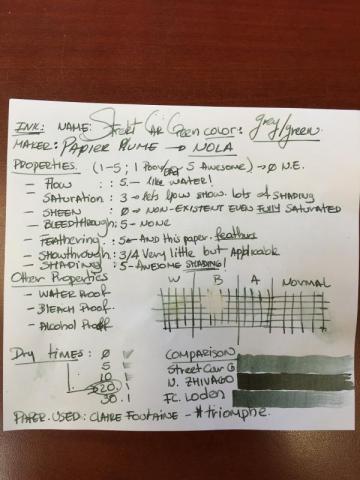 INK: NAME: Street Car Green color: grey/green
MAKER: PAPIER PLUME → NOLA
PROPERTIES. (1-5; 1 Poor 5 AWESOME) → Ø N.E.
— Flow : 5 — like WATER!
— Saturation : 3 → lets flow show. lots of SHADING
— SHEEN : Ø → NON-EXISTENT EVEN FULLY SATURATED
— BLEEDTHROUGH : 5 - NONE
— FEATHERING : 5 — AND this paper feathers
— SHOWTHROUGH : 3/4 Very little but Applicable
— SHADING : 5 - AWESOME SHADING!
Other Properties W B A NORMAL
— WATER Proof
— Bleach Proof
— Alcohol Proof
Dry times: Ø
5
10
20
30
COMPARISON
Street Car G
N. ZHIVAGO
F.C. Loden
PAPER USED: CLAIRE FONTAINE - #triomphe